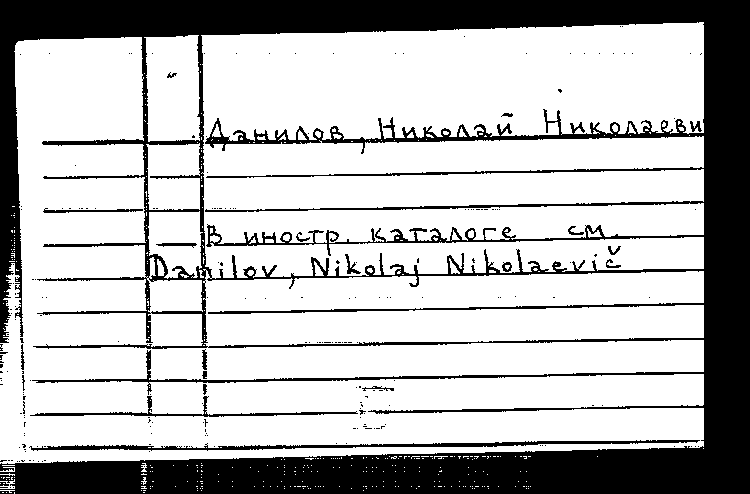 Данилов, Николай Николаеви
В иностр. каталоге см.
Danilov, Nikolaj Nikolaevič